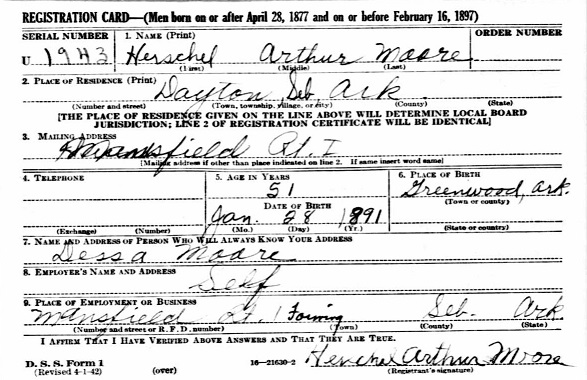 REGISTRATION CARD—(Men born on or after April 28, 1877 and on or before February 16, 1897)
SERIAL NUMBER 1. NAME (Print) ORDER NUMBER
U 1943 Herschel Arthur Moore
(First) (Middle) (Last)
2. PLACE OF RESIDENCE (Print)
Dayton, Seb, Ark.
(Number and street) (Town, township, village, or city) (County) (State)
[THE PLACE OF RESIDENCE GIVEN ON THE LINE ABOVE WILL DETERMINE LOCAL BOARD
JURISDICTION; LINE 2 OF REGISTRATION CERTIFICATE WILL BE IDENTICAL]
3. MAILING ADDRESS
Mansfield Rt. I
[Mailing address if other than place indicated on line 2. If same insert word same]
4. TELEPHONE 5. AGE IN YEARS 6. PLACE OF BIRTH
51 Greenwood, Ark.
DATE OF BIRTH (Town or county)
Jan. 28 1891
(Exchange) (Number) (Mo.) (Day) (Yr.) (State or country)
7. NAME AND ADDRESS OF PERSON WHO WILL ALWAYS KNOW YOUR ADDRESS
Dessa Moore
8. EMPLOYER'S NAME AND ADDRESS
Self
9. PLACE OF EMPLOYMENT OR BUSINESS
Mansfield Rt. 1 Seb. Ark.
(Number and street or R. F. D. number) (Town) (County) (State)
I AFFIRM THAT I HAVE VERIFIED ABOVE ANSWERS AND THAT THEY ARE TRUE.
D. S. S. Form 1
(Revised 4-1-42) (over) 16—21630-2 Herschel Arthur Moore
(Registrant's signature)